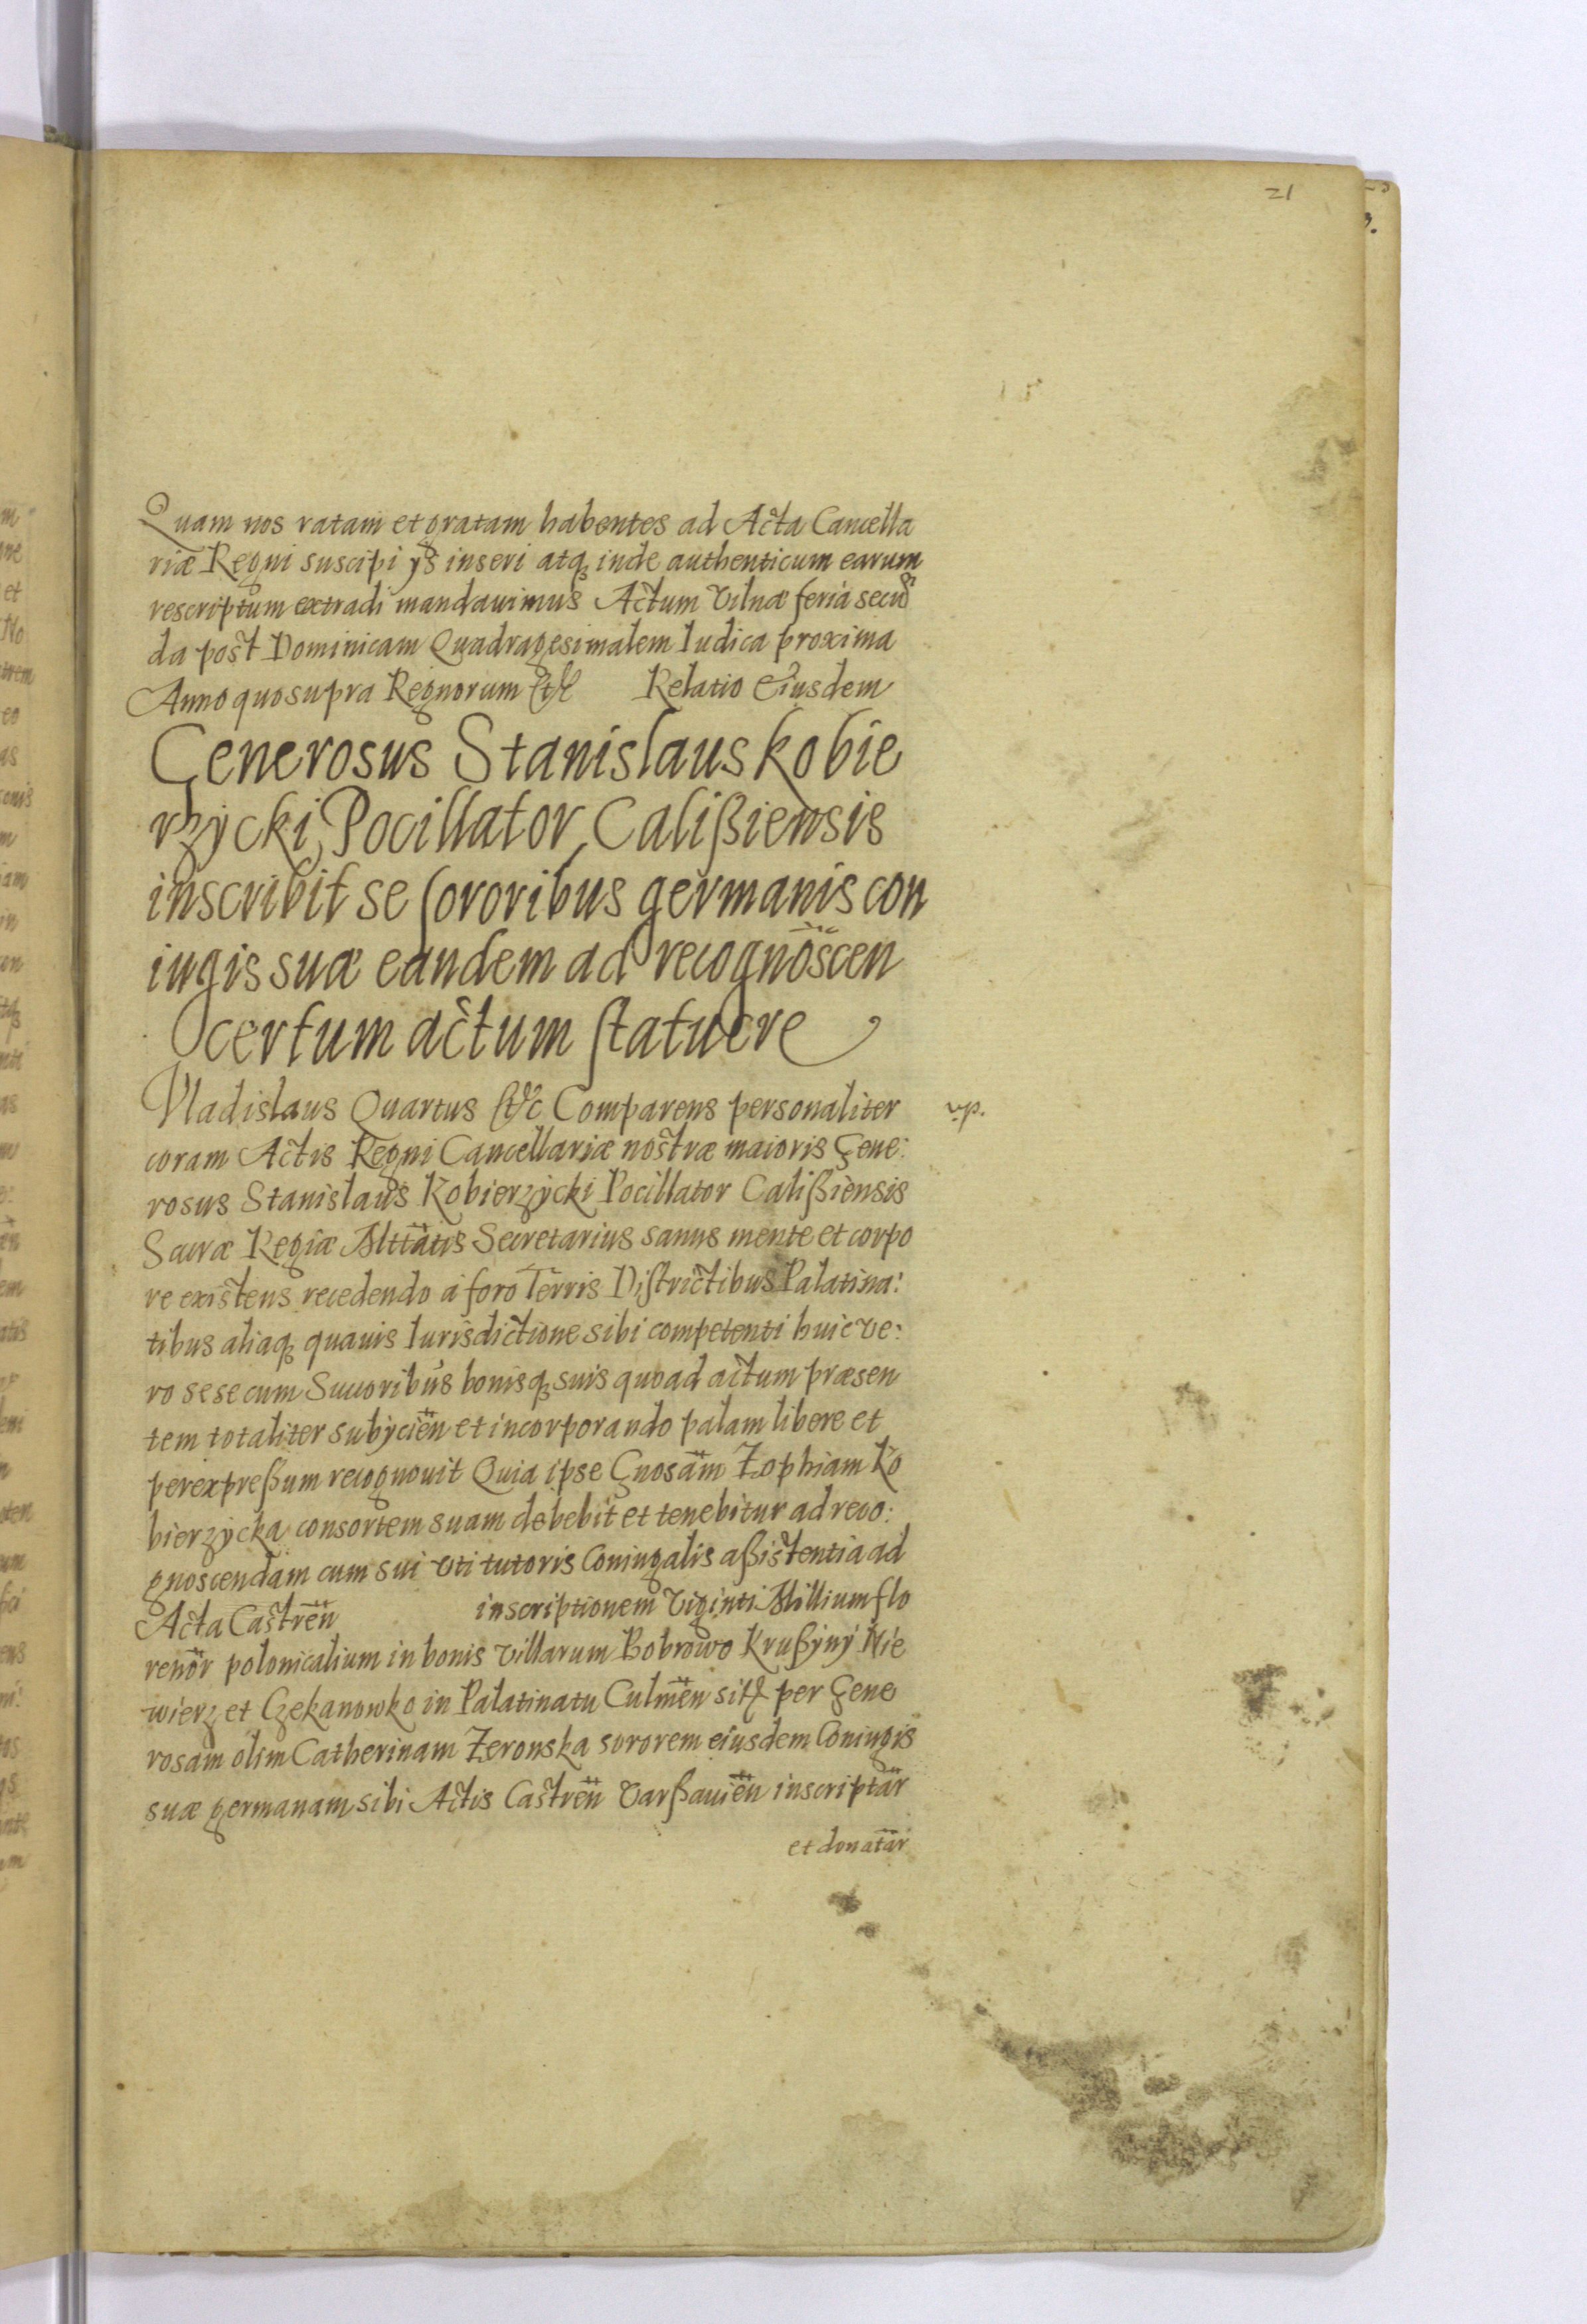 21
Quam nos ratam et gratam habentes ad Acta Cancella
riæ Regni suscipi ijs inseri atq; inde authenticum earum
rescriptum extradi mandauimus Actum Vilnæ feria secūn
da post Dominicam Quadragesimalem Iudica proxima
Anno quo supra Regnorum &c Relatio Eiusdem
Generosus Stanislaus Kobie
rzycki Pocillator Calißiensis
inscribit se sororibus germanis con
iugis suæ eandem ad recognoscen
certum actum statuere
Vladislaus Quartus &c Comparens personaliter
coram Actis Regni Cancellariæ nostræ maioris Gene:
rosus Stanislaus Kobierzycki Pocillator Calißiensis
Sacræ Regiæ Mttatis Secretarius sanus mente et corpo
re existens recedendo a foro Terris Districtibus Palatina:
tibus aliaq; quauis Iurisdictione sibi competenti huic ve:
ro sese cum Succoribus bonisq; suis quoad actum præsen
tem totaliter subijcien̈ et incorporando palam libere et
per expreßum recognouit Quia ipse Gnosam̈ Zophiam Ko
bierzycka consortem suam debebit et tenebitur ad reco:
gnoscendam cum sui vti tutoris Coniugalis aßistentia ad
Acta Castren̈ inscriptionem Viginti Millium flo
renor̈ polonicalium in bonis villarum Bobrowo Krußyny Nie
wierz et Czekanowko in Palatinatu Culmen̈ sit per Gene
rosam olim Catherinam Zeronska sororem eiusdem Coniugis
suæ germanam sibi Actis Castren̈ Varßauien̈ inscriptar̈
et donatar̈